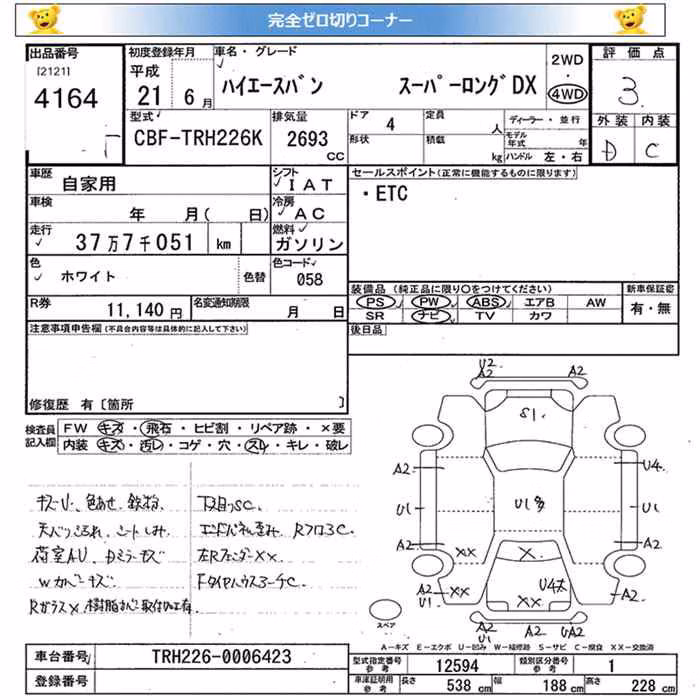 完全ゼロ切りコーナー
出品番号 初度登録年月 車名・グレード 2WD・ 評価点
[2121] 平成
4164 21 6月 ハイエースバン スーパーロングDX 4WD 3
型式 排気量 ドア 定員 ディーラー・並行 外装 内装
CBF-TRH226K 2693 4 人 モデル年式 年 D C
CC 形状 積載 kg ハンドル 左・右
車歴 自家用 シフト IAT セールスポイント(正常に機能するものに限ります)
車検 年 月( 日) 冷房 AC ・ETC
走行 37万7千051 km 燃料 ガソリン
色 ホワイト 色替 色コード 058
装備品 (純正品に限り〇をつけてください) 新車保証書
R券 11,140円 名変通知期限 月 日 PS PW ABS エアB AW 有・無
SR ナビ TV カワ
注意事項申告欄(不具合内容等は具体的に記入して下さい) 後日品
修復歴 有〔箇所 〕
検査員 FW キズ・飛石・ヒビ割・リペア跡・×要
記入欄 内装 キズ・汚レ・コゲ・穴・スレ・キレ・破レ
U2
A2 A2
S1
A2 U4
U1 U1多 U1
A2 A2
XX X
XX U4大 A2
A2 XX U1
U1
A2 A2 UA2
U1
スペア
キズU、色あせ、鉄粉、 下廻りSC
シートしみ エンドパネル歪み RフロアC
荷室AU 左RフェンダーXX
Wカバーキズ FタイヤハウスコーチC
RガラスX
A-キズ E-エクボ U-凹み W-補修跡 S-サビ C-腐食 XX-交換済
車台番号 TRH226-0006423 型式指定番号 参考 12594 類別区分番号 参考 1
登録番号 車庫証明用 参考 長さ 538cm 幅 188cm 高さ 228cm